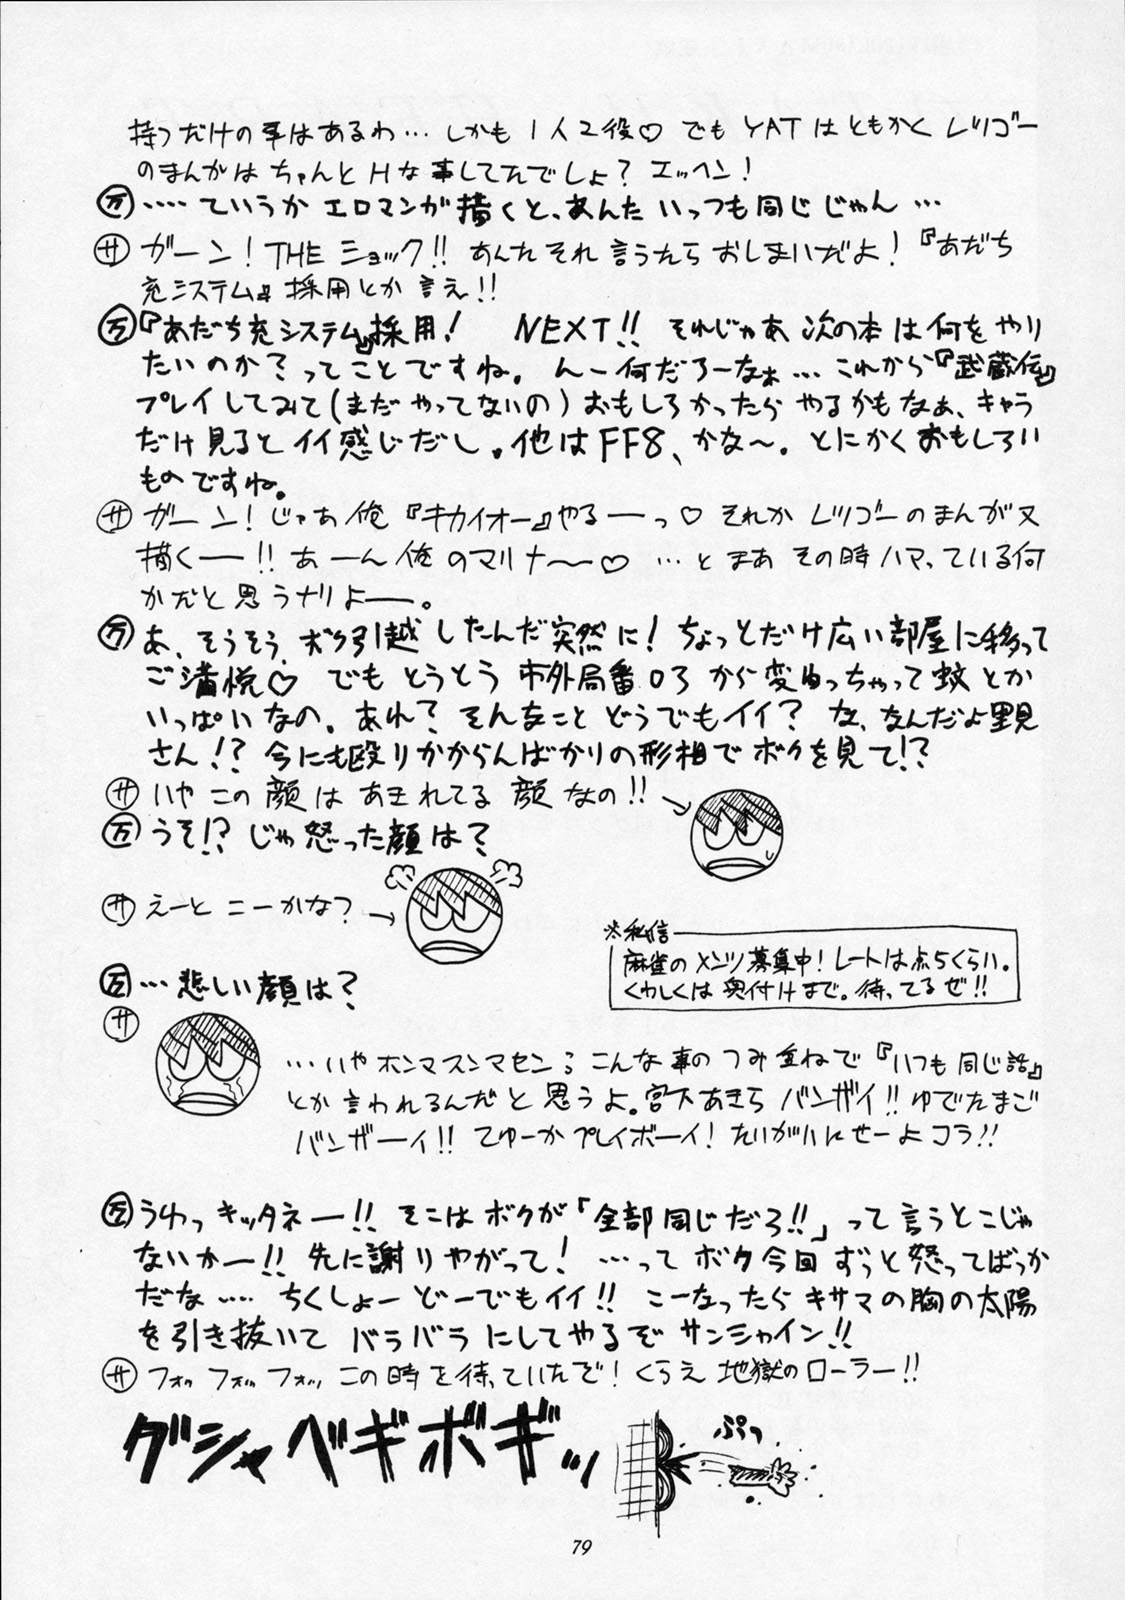 持つだけの事はあるわ… しかも1人2役♡ でもYATはともかくレツゴー
のまんがはちゃんとHな事してたでしょ? エッヘン!
万 ‥‥ていうかエロマンガ描くと、あんたいっつも同じじゃん…
サ ガーン! THE ショック!! あんたそれ言うたらおしまいだよ!『あだち
充システム』採用とか言え!!
万『あだち充システム』採用! NEXT!! それじゃあ次の本は何をやり
たいのか?ってことですね。んー何だろーなぁ… これから『武蔵伝』
プレイしてみて(まだやってないの)おもしろかったらやるかもなぁ、キャラ
だけ見るとイイ感じだし。他はFF8、かな〜。とにかくおもしろい
ものですね。
サ ガーン!じゃあ俺『キカイオー』やるーっ♡ それかレツゴーのまんが又
描くー!! あーん俺のマリナ〜♡ …とまあその時ハマっている何
かだと思うナリよー。
万 あ、そうそう、ボク引越ししたんだ突然に! ちょっとだけ広い部屋に移って
ご満悦♡ でもとうとう市外局番03から変わっちゃって蚊とか
いっぱいなの。あれ? そんなことどうでもイイ? な、なんだよ里見
さん!? 今にも殴りかからんばかりの形相でボクを見て!?
サ いやこの顔はあきれてる顔なの!!→
万 うそ!? じゃ怒った顔は?
サ えーとこーかな?→
※私信
麻雀のメンツ募集中! レートは点5くらい。
くわしくは奥付けまで。待ってるぜ!!
万 …悲しい顔は?
サ
…いやホンマスンマセン; こんな事のつみ重ねで『いつも同じ話』
とか言われるんだと思うよ。宮下あきらバンザイ!! ゆでたまご
バンザーイ!! てゆーかプレイボーイ! たいがいにせーよコラ!!
万 うわっキッタネー!! そこはボクが「全部同じだろ!!」って言うとこじゃ
ないかー!! 先に謝りやがって! …ってボク今回ずっと怒ってばっか
だな…‥ ちくしょーどーでもイイ!! こーなったらキサマの胸の太陽
を引き抜いてバラバラにしてやるぞサンシャイン!!
サ フォッフォッフォッ この時を待っていたで! くらえ地獄のローラー!!
グシャベギボギッ
ぷっ
79